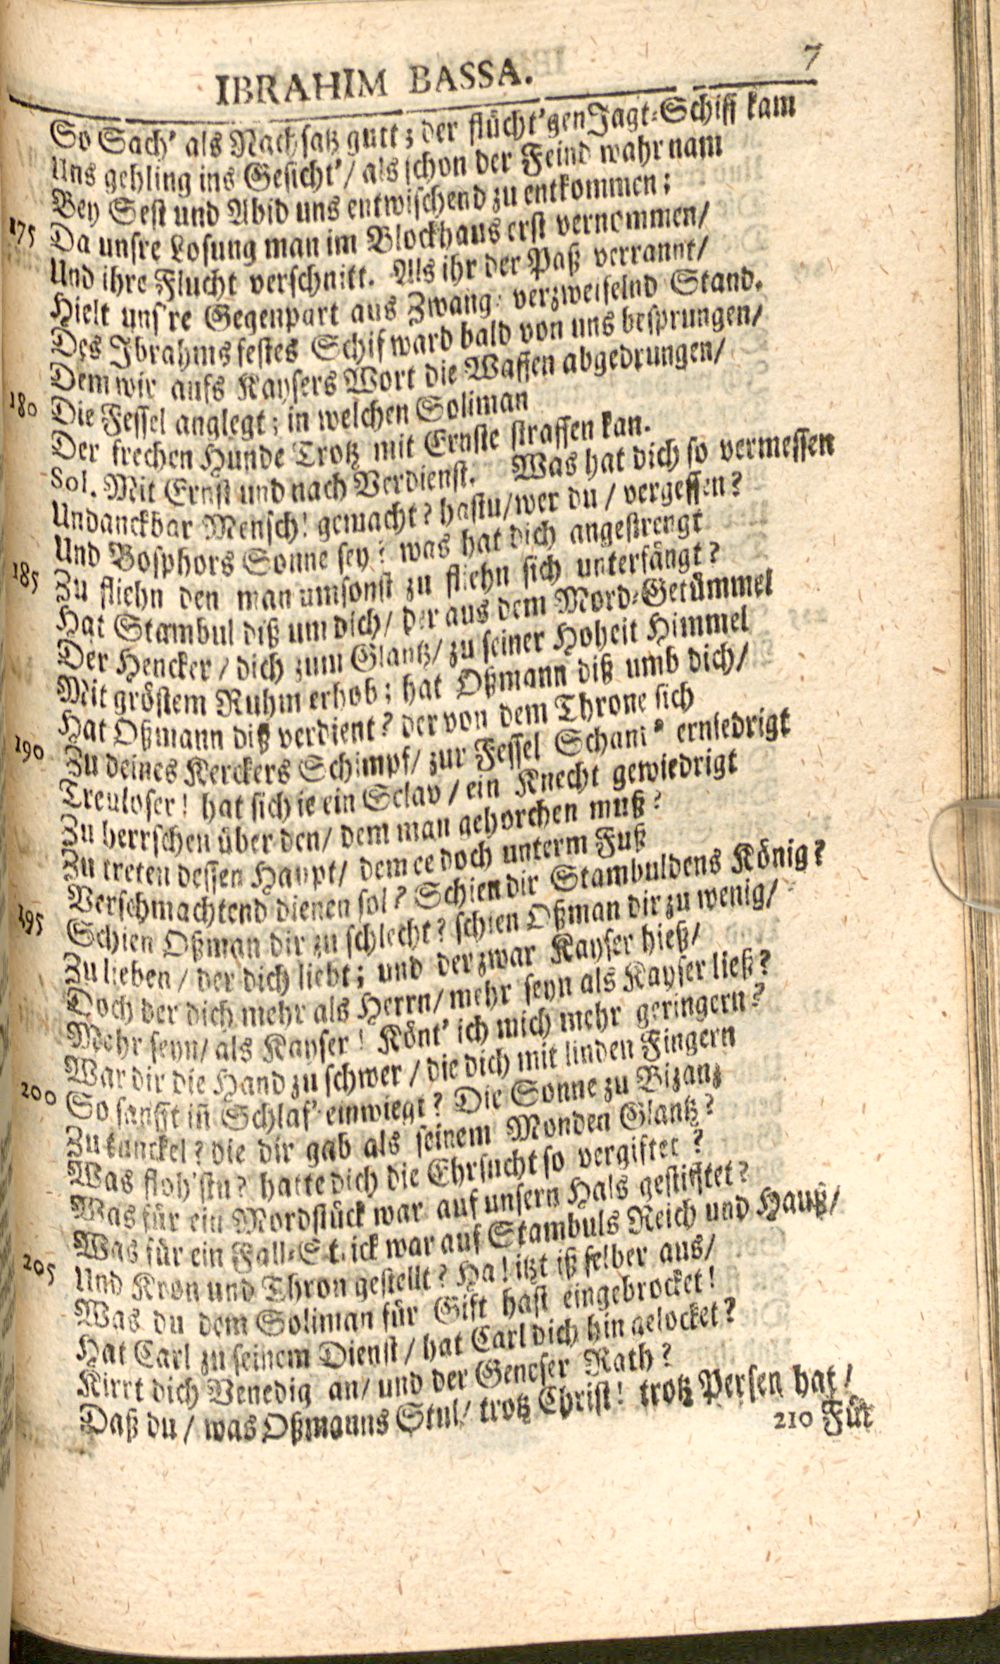 IBRAHIM BASSA. 7
So Sach' als Nachsatz gutt; der flücht'gen Jagt-Schiff kam
Uns gehling ins Gesicht'/ als schon der Feind wahr nam
Bey Sest und Abid uns entwischend zu entkommen;
175 Da unsre Losung man im Blockhaus erst vernommen/
Und ihre Flucht verschnitt. Als ihr der Paß verrannt/
Hielt uns're Gegenpart aus Zwang verzweifelnd Stand.
Des Ibrahms festes Schif ward bald von uns besprungen/
Dem wir aufs Kaysers Wort die Waffen abgedrungen/
180 Die Fessel anglegt; in welchen Soliman
Der frechen Hunde Trotz mit Ernste straffen kan.
Sol. Mit Ernst und nach Verdienst. Was hat dich so vermessen
Undanckbar Mensch! gemacht? hastu/ wer du / vergessen?
Und Bosphors Sonne sey? was hat dich angestrengt
185 Zu fliehn den man umsonst zu fliehn sich unterfängt?
Hat Stambul diß um dich/ der aus dem Mord-Getümmel
Der Hencker / dich zum Glantz/ zu seiner Hoheit Himmel
Mit gröstem Ruhm erhob; hat Oßmann diß umb dich/
Hat Oßmann diß verdient? der von dem Throne sich
190 Zu deines Kerckers Schimpf/ zur Fessel Scham erniedrigt
Treuloser! hat sich ie ein Sclav / ein Knecht gewiedrigt
Zu herrschen über den/ dem man gehorchen muß?
Zu treten dessen Haupt/ dem ee doch unterm Fuß
Verschmachtend dienen sol? Schien dir Stambuldens König?
195 Schien Oßman dir zu schlecht? schien Oßman dir zu wenig/
Zu lieben / der dich liebt; und der zwar Kayser hieß/
Doch der dich mehr als Herrn/ mehr seyn als Kayser ließ?
Mehr seyn/ als Kayser! Könt' ich mich mehr geringern?
War dir die Hand zu schwer / die dich mit linden Fingern
200 So sanfft in Schlaf' einwiegt? Die Sonne zu Bizanz
Zu tunckel? die dir gab als seinem Monden Glantz?
Was floh'stu? hatte dich die Ehrsucht so vergiftet?
Was für ein Mordstück war auf unsern Hals gestifftet?
Was für ein Fall-Strick war auf Stambuls Reich und Hauß/
205 Und Kron und Thron gestellt? Ha! itzt iß selber aus/
Was du dem Soliman für Gift hast eingebrocket!
Hat Carl zu seinem Dienst / hat Carl dich hin gelocket?
Kirrt dich Venedig an/ und der Geneser Rath?
Daß du / was Oßmanns Stul/ trotz Christ! trotz Persen hat/
210 Für